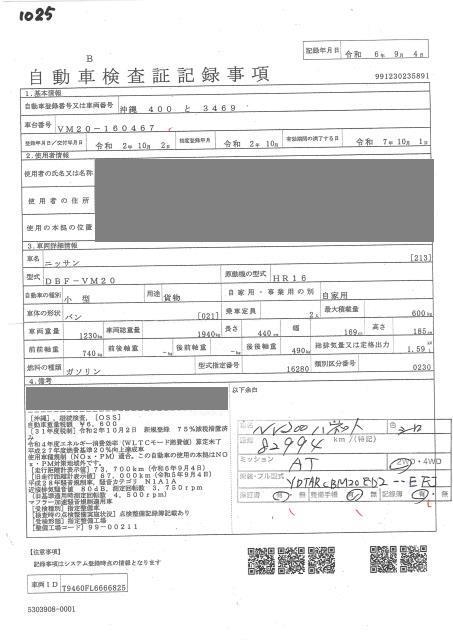 1025
B
自動車検査証記録事項
記録年月日 令和 6年 9月 4日
991230235891
1.基本情報
自動車登録番号又は車両番号 沖縄 400 と 3469
車台番号 VM20-160467
登録年月日/交付年月日 令和 2年 10月 2日 初度登録年月 令和 2年 10月 有効期間の満了する日 令和 7年 10月 1日
2.使用者情報
使用者の氏名又は名称
使用者の住所
使用の本拠の位置
3.車両詳細情報
車名 ニッサン [213]
型式 DBF-VM20 原動機の型式 HR16
自動車の種別 小型 用途 貨物 自家用・事業用の別 自家用
車体の形状 バン [021] 乗車定員 2人 最大積載量 600kg
車両重量 1230kg 車両総重量 1940kg 長さ 440cm 幅 169cm 高さ 185cm
前前軸重 740kg 前後軸重 -kg 後前軸重 -kg 後後軸重 490kg 総排気量又は定格出力 1.59L
燃料の種類 ガソリン 型式指定番号 16280 類別区分番号 0230
4.備考
以下余白
[沖縄],継続検査,[OSS]
自動車重量税額 ¥6,600
[31年度税制]令和2年10月2日 新規登録 75%減税措置済み
令和4年度エネルギー消費効率(WLTCモード燃費値)算定未了
平成27年度燃費基準20%向上達成車
使用車種規制(NOx・PM)適合,この自動車の使用の本拠はNOx・PM対策地域外です。
[走行距離計表示値]73,700km(令和6年9月4日)
[旧走行距離計表示値]67,000km(令和5年9月4日)
平成28年騒音規制車,騒音カテゴリ N1A1A
近接排気騒音値 80dB,測定回転数 3,750rpm
(旧基準適用時測定回転数 4,500rpm)
マフラー加速騒音規制適用車
[受検種別]指定整備車
[検査時の点検整備実施状況]点検整備記録簿記載あり
[受検形態]指定整備工場
[整備工場コード]99-00211
NV200バネット 色 シロ
82994 km/(特記)
ミッション AT 2WD・4WD
部装・フル型式 YDTARCBM20ED2--EFJ
保証書 有・無 整備手帳 有・無 記録簿 有・無
[注意事項]
記録事項はシステム登録時点の情報となります
車両ID T9460FL6666825
5303908-0001